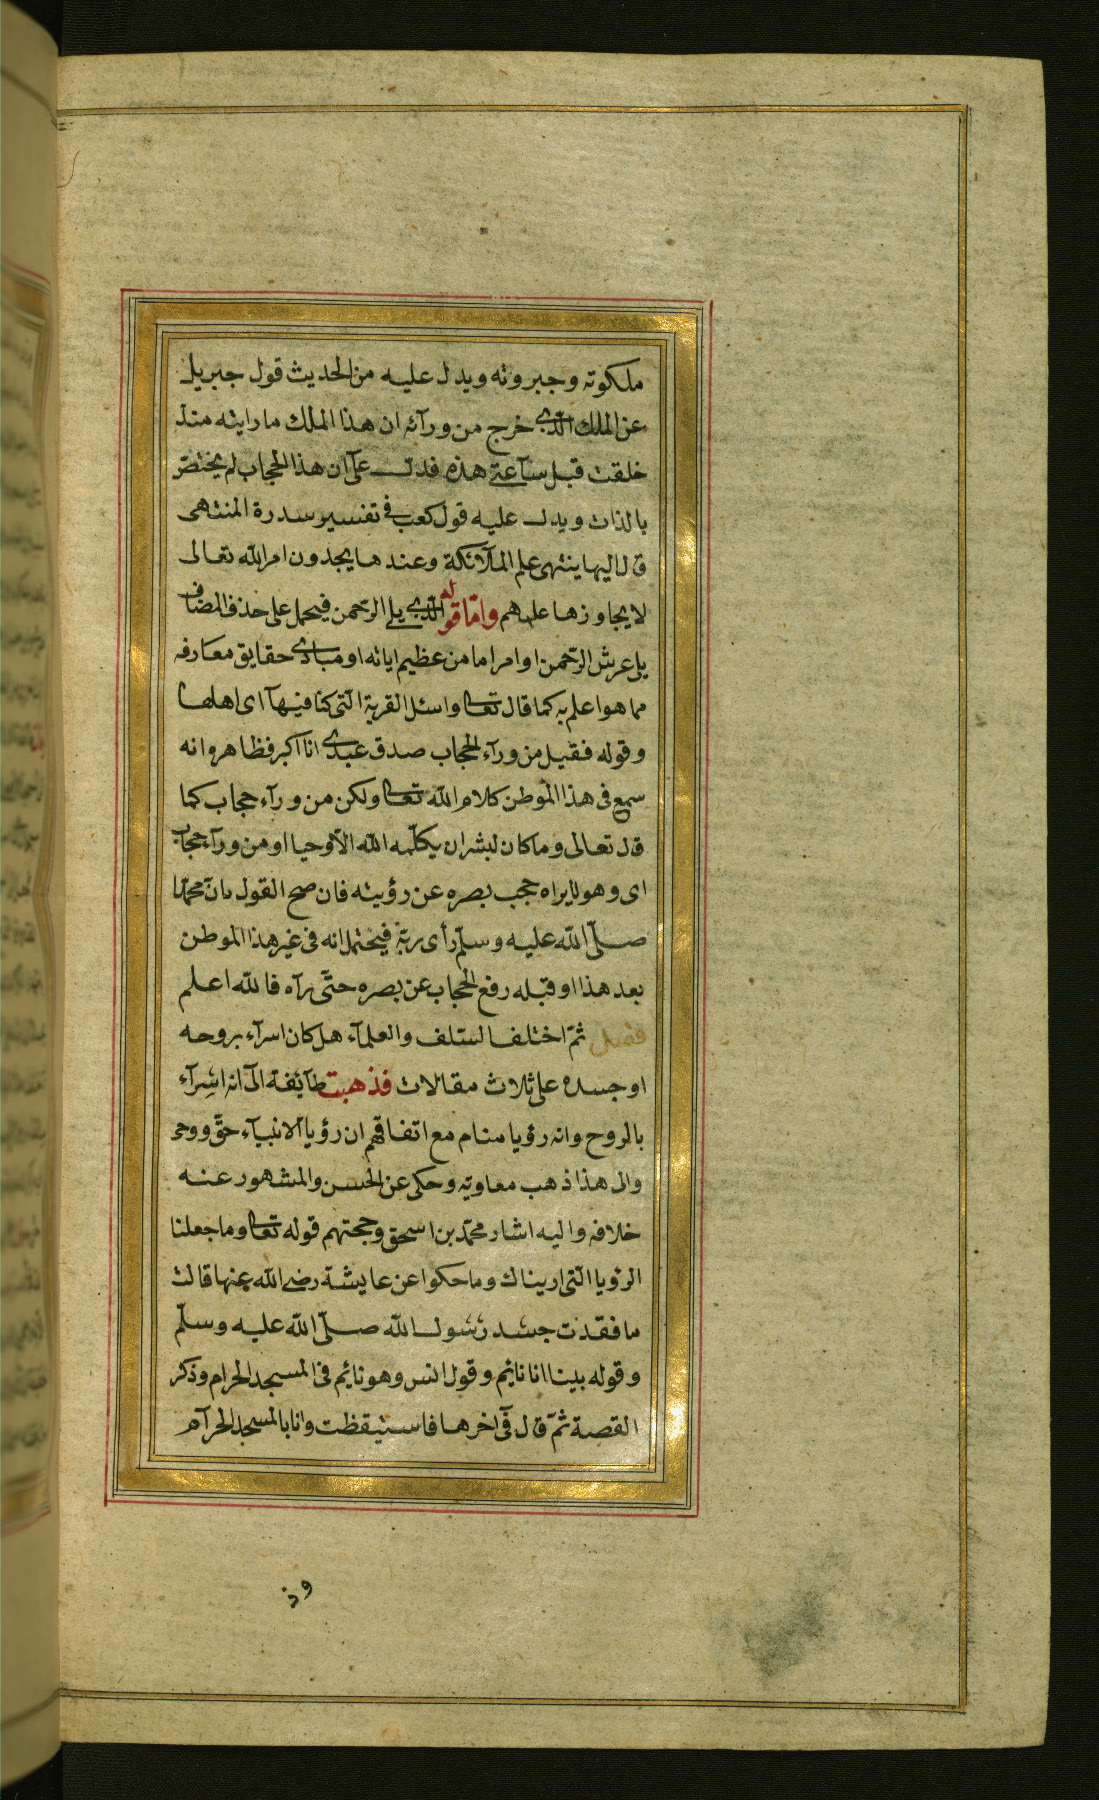 ملكوته وجبروته ويدل عليه من الحديث قول جبريل
عن الملك الذى خرج من ورآئه ان هذا الملك ما رايته منذ
خلقت قبل سآعتى هذه فدل على ان هذا الحجاب لم يختص
بالذات ويدل عليه قول كعب فى تفسير سدرة المنتهى
قال اليها ينتهى علم الملآئكة وعندها يجدون امر الله تعالى
لا يجاوزها علمهم وامّا قوله الذى يلى الرّحمن فيحمل على حذف المضاف
يلى عرش الرّحمن او امرا ما من عظيم اياته او مبادى حقايق معارفه
مما هو اعلم به كما قال تعالى واسئل القرية الّتى كنا فيهآ اى اهلها
وقوله فقيل من ورآء الحجاب صدق عبدى انا اكبر فظاهره انه
سمع فى هذا الموطن كلام الله تعالى ولكن من ورآء حجاب كما
قال تعالى وما كان لبشر ان يكلّمه الله الّا وحيا او من ورآء حجاب
اى وهو لا يراه حجب بصره عن رؤيته فان صح القول بانّ محمّدا
صلّى الله عليه وسلّم رأى ربّه فيحتمل انه فى غير هذا الموطن
بعد هذا او قبله رفع الحجاب عن بصره حتّى رآه فالله اعلم
فصل ثمّ اختلف السّلف والعلمآء هل كان اسرآء بروحه
او جسده على ثلاث مقالات فذهبت طآيفة الىٓ انه اسرآء
بالروح وانه رؤيا منام مع اتفاقهم ان رؤيا الانبيآء حقّ ووحى
والى هذا ذهب معاوية وحكى عن الحسن والمشهور عنه
خلافه واليه اشار محمّد بن اسحق وحجتهم قوله تعالى وما جعلنا
الرؤيا الّتى اريناك وما حكوا عن عايشة رضى الله عنها قالت
ما فقدت جسد رسول الله صلّى الله عليه وسلّم
وقوله بينا انا نائم وقول انس وهو نائم فى المسجد الحرام وذكر
القصة ثمّ قال فىٓ اخرها فاستيقظت وانا بالمسجد الحرآم
وذ